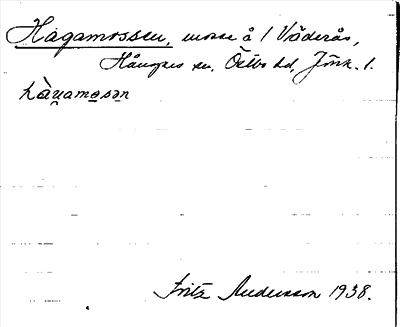 Hagamossen, mosse å 1 Väderås,
Hångers sn, Östbo hd, Jönk. l.
hàɡamɵsən
Fritz Andersson 1938.